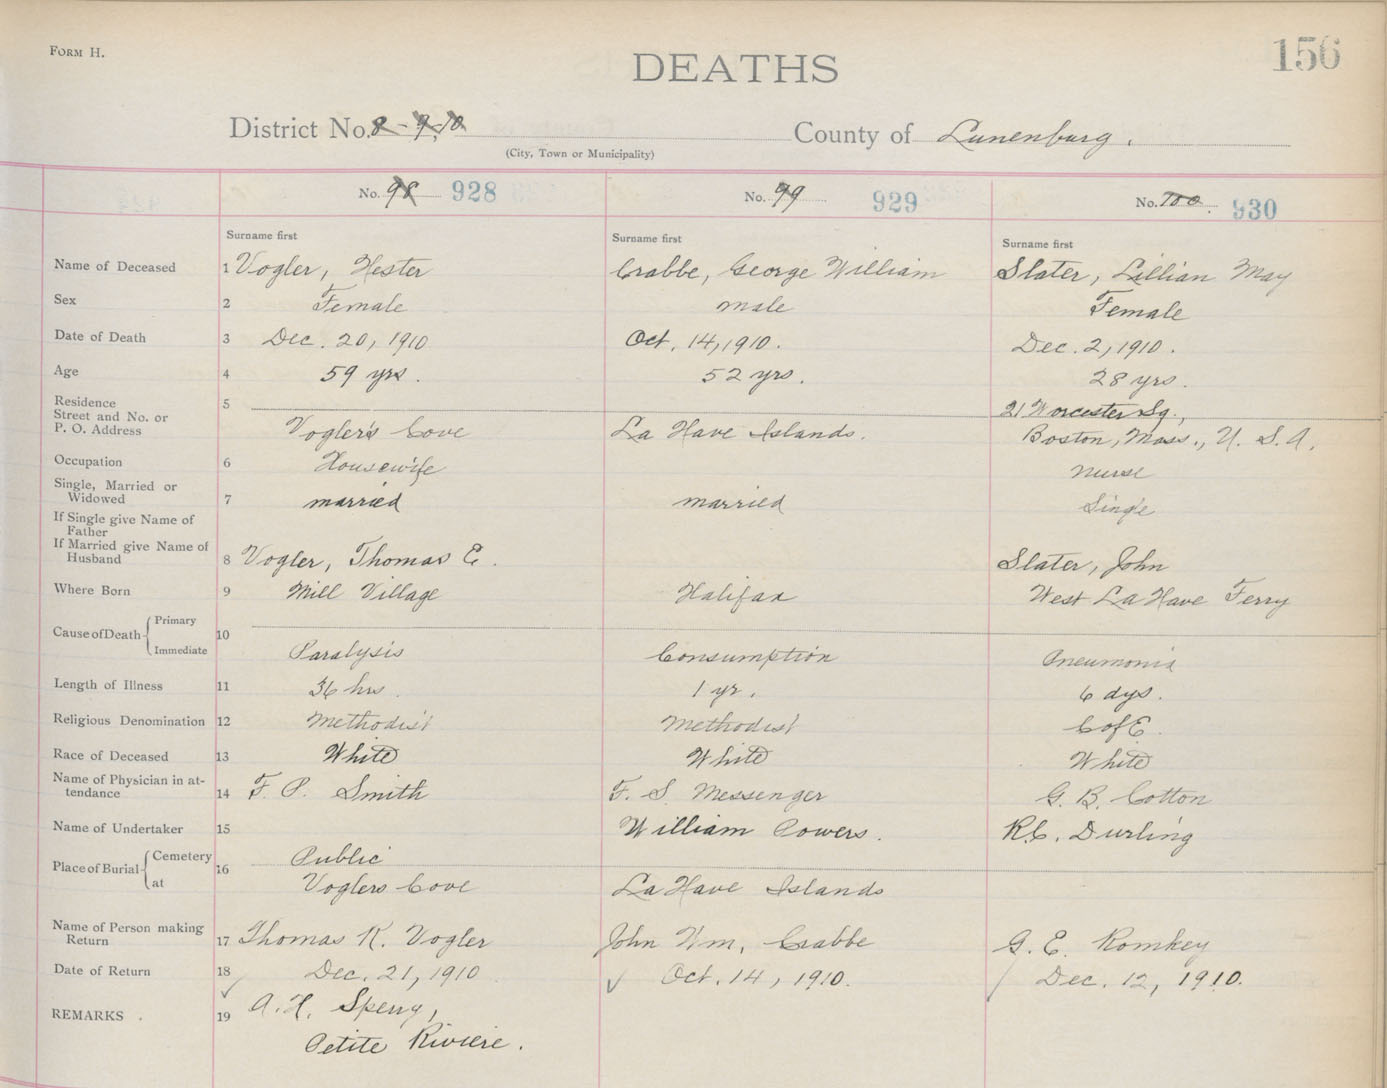 FORM H.
156
DEATHS
District No. 8-9-10 County of Lunenburg.
(City, Town or Municipality)
No. 98 928 No. 99 929 No. 100 930
Surname first Surname first Surname first
Name of Deceased 1 Vogler, Hester Crabbe, George William Slater, Lillian May
Sex 2 Female male Female
Date of Death 3 Dec. 20, 1910 Oct. 14, 1910. Dec. 2, 1910.
Age 4 59 yrs. 52 yrs. 28 yrs.
Residence 5 21 Worcester Sq.,
Street and No. or
P. O. Address Vogler's Cove La Have Islands. Boston, Mass., U. S. A.
Occupation 6 Housewife nurse
Single, Married or
Widowed 7 married married Single
If Single give Name of
Father
If Married give Name of
Husband 8 Vogler, Thomas E. Slater, John
Where Born 9 Mill Village Halifax West La Have Ferry
Cause of Death Primary 10
Immediate Paralysis Consumption Pneumonia
Length of Illness 11 36 hrs. 1 yr. 6 dys.
Religious Denomination 12 Methodist Methodist C of E
Race of Deceased 13 White White White
Name of Physician in at-
tendance 14 F. P. Smith F. S. Messenger G. B. Cotton
Name of Undertaker 15 William Powers. R.C. Durling
Place of Burial Cemetery 16 Public
at Voglers Cove La Have Islands
Name of Person making
Return 17 Thomas R. Vogler John Wm. Crabbe G. E. Romkey
Date of Return 18 Dec. 21, 1910 Oct. 14, 1910. Dec. 12, 1910.
REMARKS. 19 A. H. Sperry,
Petite Riviere.